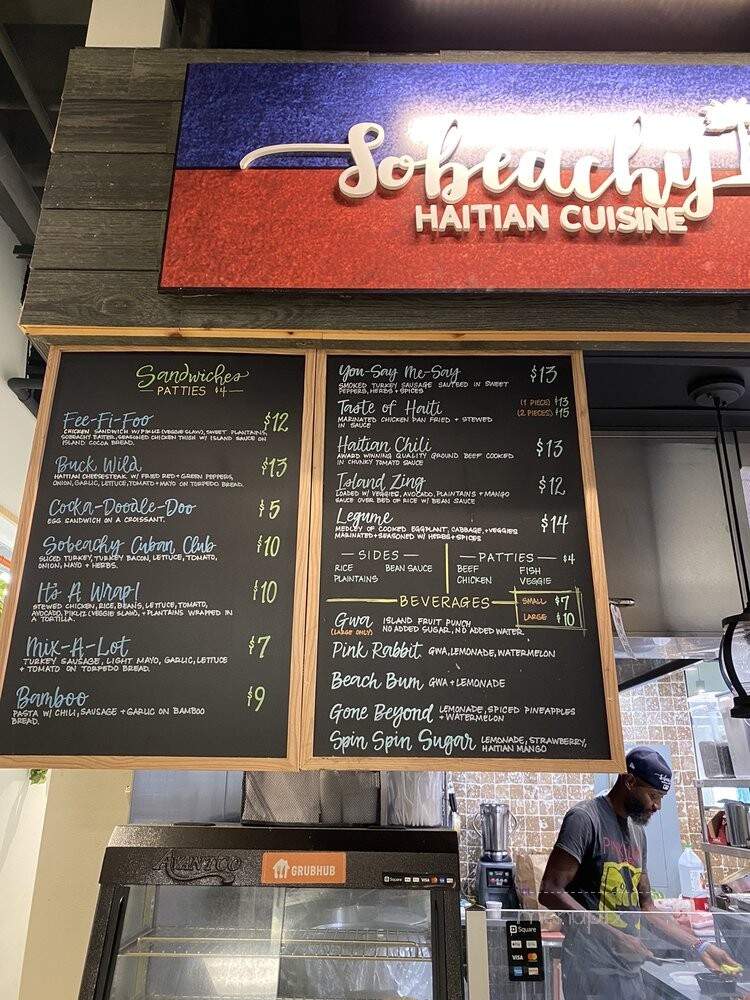 Sobeachy
HAITIAN CUISINE
Sandwiches
PATTIES $4
Fee-Fi-Foo $12
CHICKEN SANDWICH W/ PIKLIZ (VEGGIE SLAW), SWEET PLANTAINS,
SOBEACHY BATTER, SEASONED CHICKEN THIGH W/ ISLAND SAUCE ON
ISLAND COCOA BREAD.
Buck Wild $13
HAITIAN CHEESESTEAK W/ FRIED RED + GREEN PEPPERS,
ONION, GARLIC, LETTUCE, TOMATO + MAYO ON TORPEDO BREAD.
Cocka-Doodle-Doo $5
EGG SANDWICH ON A CROISSANT.
Sobeachy Cuban Club $10
SLICED TURKEY, TURKEY BACON, LETTUCE, TOMATO,
ONION, MAYO + HERBS.
It's A Wrap! $10
STEWED CHICKEN, RICE, BEANS, LETTUCE, TOMATO,
AVOCADO, PIKLIZ (VEGGIE SLAW), + PLANTAINS WRAPPED IN
A TORTILLA.
Mix-A-Lot $7
TURKEY SAUSAGE, LIGHT MAYO, GARLIC, LETTUCE
+ TOMATO ON TORPEDO BREAD.
Bamboo $9
PASTA W/ CHILI, SAUSAGE + GARLIC ON BAMBOO
BREAD.
You-Say Me-Say $13
SMOKED TURKEY SAUSAGE SAUTEED IN SWEET
PEPPERS, HERBS + SPICES
Taste of Haiti (1 PIECE) $13
(2 PIECES) $15
MARINATED CHICKEN PAN FRIED + STEWED
IN SAUCE
Haitian Chili $13
AWARD WINNING QUALITY GROUND BEEF COOKED
IN CHUNKY TOMATO SAUCE
Island Zing $12
LOADED W/ VEGGIES, AVOCADO, PLANTAINS + MANGO
SAUCE OVER BED OF RICE W/ BEAN SAUCE
Legume $14
MEDLEY OF COOKED EGGPLANT, CABBAGE, + VEGGIES
MARINATED + SEASONED W/ HERBS + SPICES
SIDES
RICE BEAN SAUCE
PLANTAINS
PATTIES $4
BEEF FISH
CHICKEN VEGGIE
BEVERAGES
SMALL $7
LARGE $10
Gwa ISLAND FRUIT PUNCH
(LARGE ONLY) NO ADDED SUGAR, NO ADDED WATER.
Pink Rabbit GWA, LEMONADE, WATERMELON
Beach Bum GWA + LEMONADE
Gone Beyond LEMONADE, SPICED PINEAPPLES
+ WATERMELON
Spin Spin Sugar LEMONADE, STRAWBERRY,
HAITIAN MANGO
AVANTCO
GRUBHUB
Square
VISA
Square
VISA